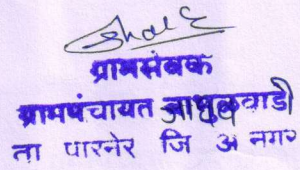 ग्रामसेवक
ग्रामपंचायत
ता पारनेर जि अ नगर